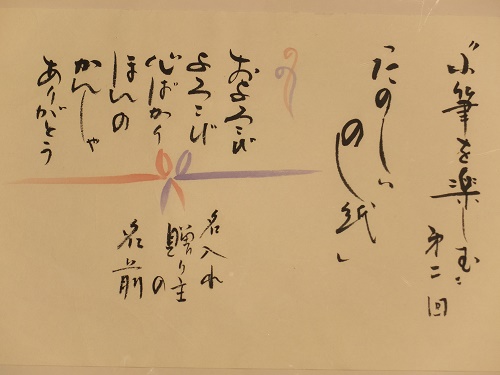 "小筆を楽しむ"
第二回
「たのしい
のし紙」
およろこび
よろこび
心ばかり
ほんの
かんしゃ
ありがとう
名入れ
贈り主の
名前